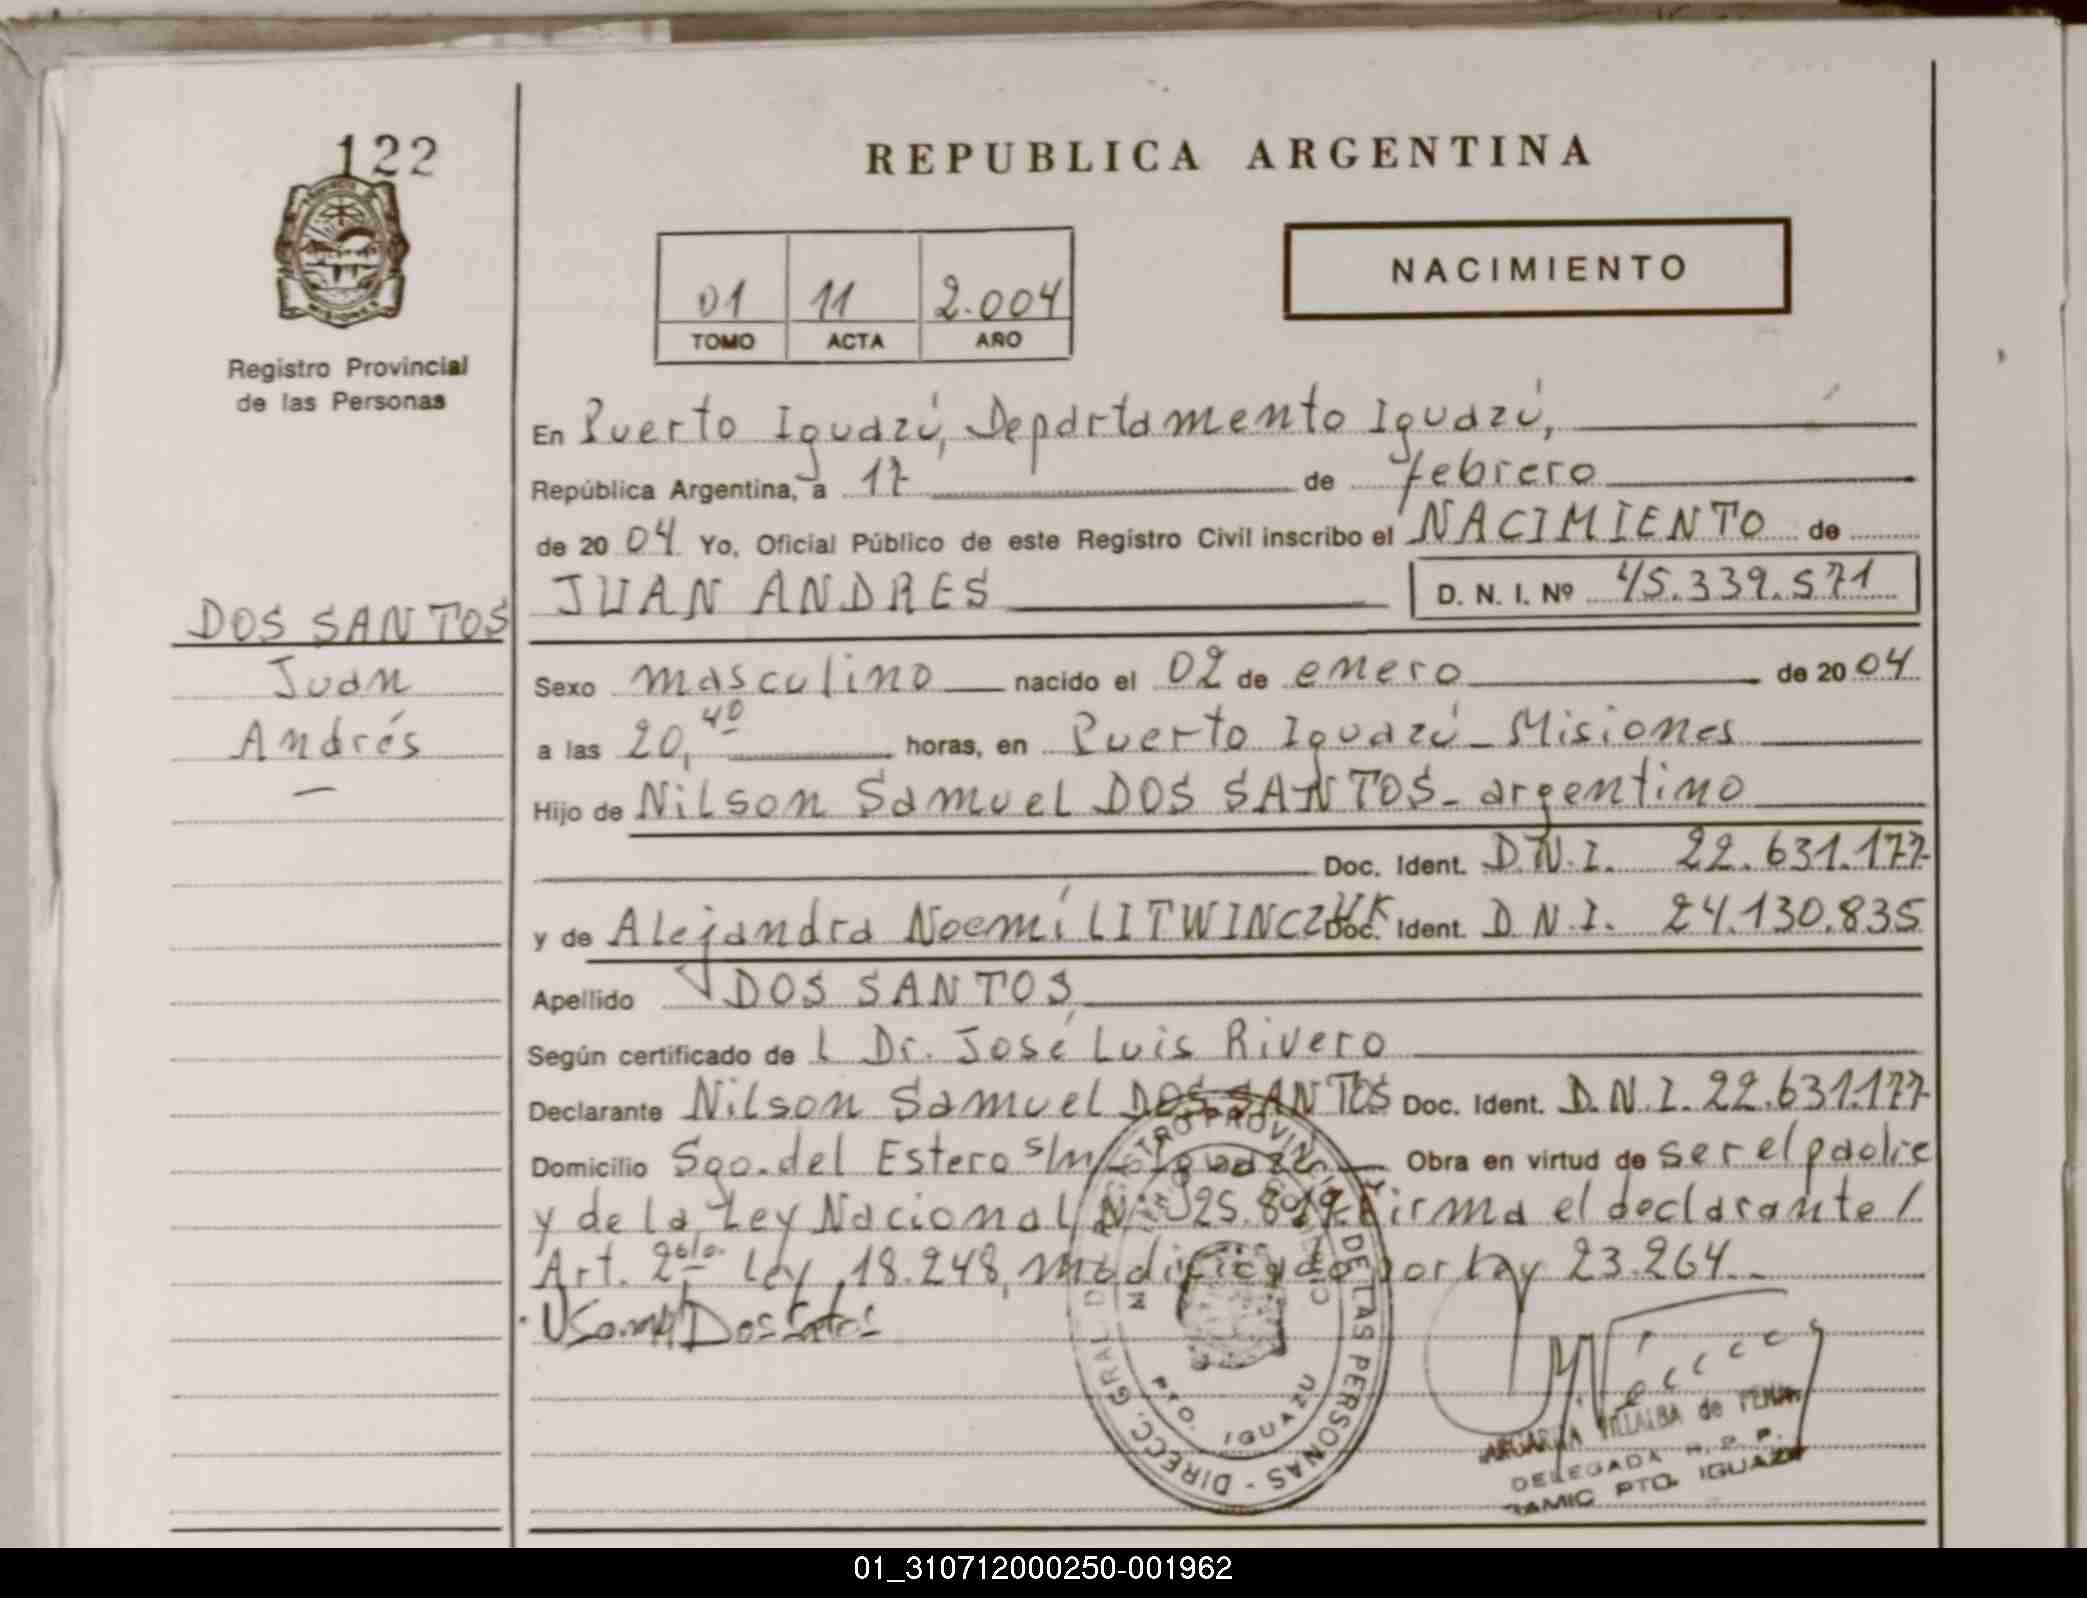 122
REPUBLICA ARGENTINA
NACIMIENTO
01 11 2.004
TOMO ACTA AÑO
Registro Provincial
de las Personas
En Puerto Iguazú, Departamento Iguazú,
República Argentina, a 17 de febrero
de 2004 Yo, Oficial Público de este Registro Civil inscribo el NACIMIENTO de
JUAN ANDRES D. N. I. Nº 45.339.571
DOS SANTOS
Juan
Andrés
Sexo masculino nacido el 02 de enero de 2004
a las 20,40 horas, en Puerto Iguazú - Misiones
Hijo de Nilson Samuel DOS SANTOS - argentino
Doc. Ident. D.N.I. 22.631.177
y de Alejandra Noemí LITWINCZUK Doc. Ident. D.N.I. 24.130.835
Apellido DOS SANTOS
Según certificado de l Dr. José Luis Rivero
Declarante Nilson Samuel DOS SANTOS Doc. Ident. D.N.I. 22.631.177
Domicilio Sgo. del Estero s/n Iguazú Obra en virtud de ser el padre
y de la Ley Nacional Nº 25.819 Firma el declarante /
Art. 2do. Ley 18.248, modificado por Ley 23.264.-
Dos Santos
DIRECC. GRAL. DE REGISTRO PROVINCIAL DE LAS PERSONAS
PTO. IGUAZU
VILLALBA de
DELEGADA R. P. P.
PTO. IGUAZU
01_310712000250-001962